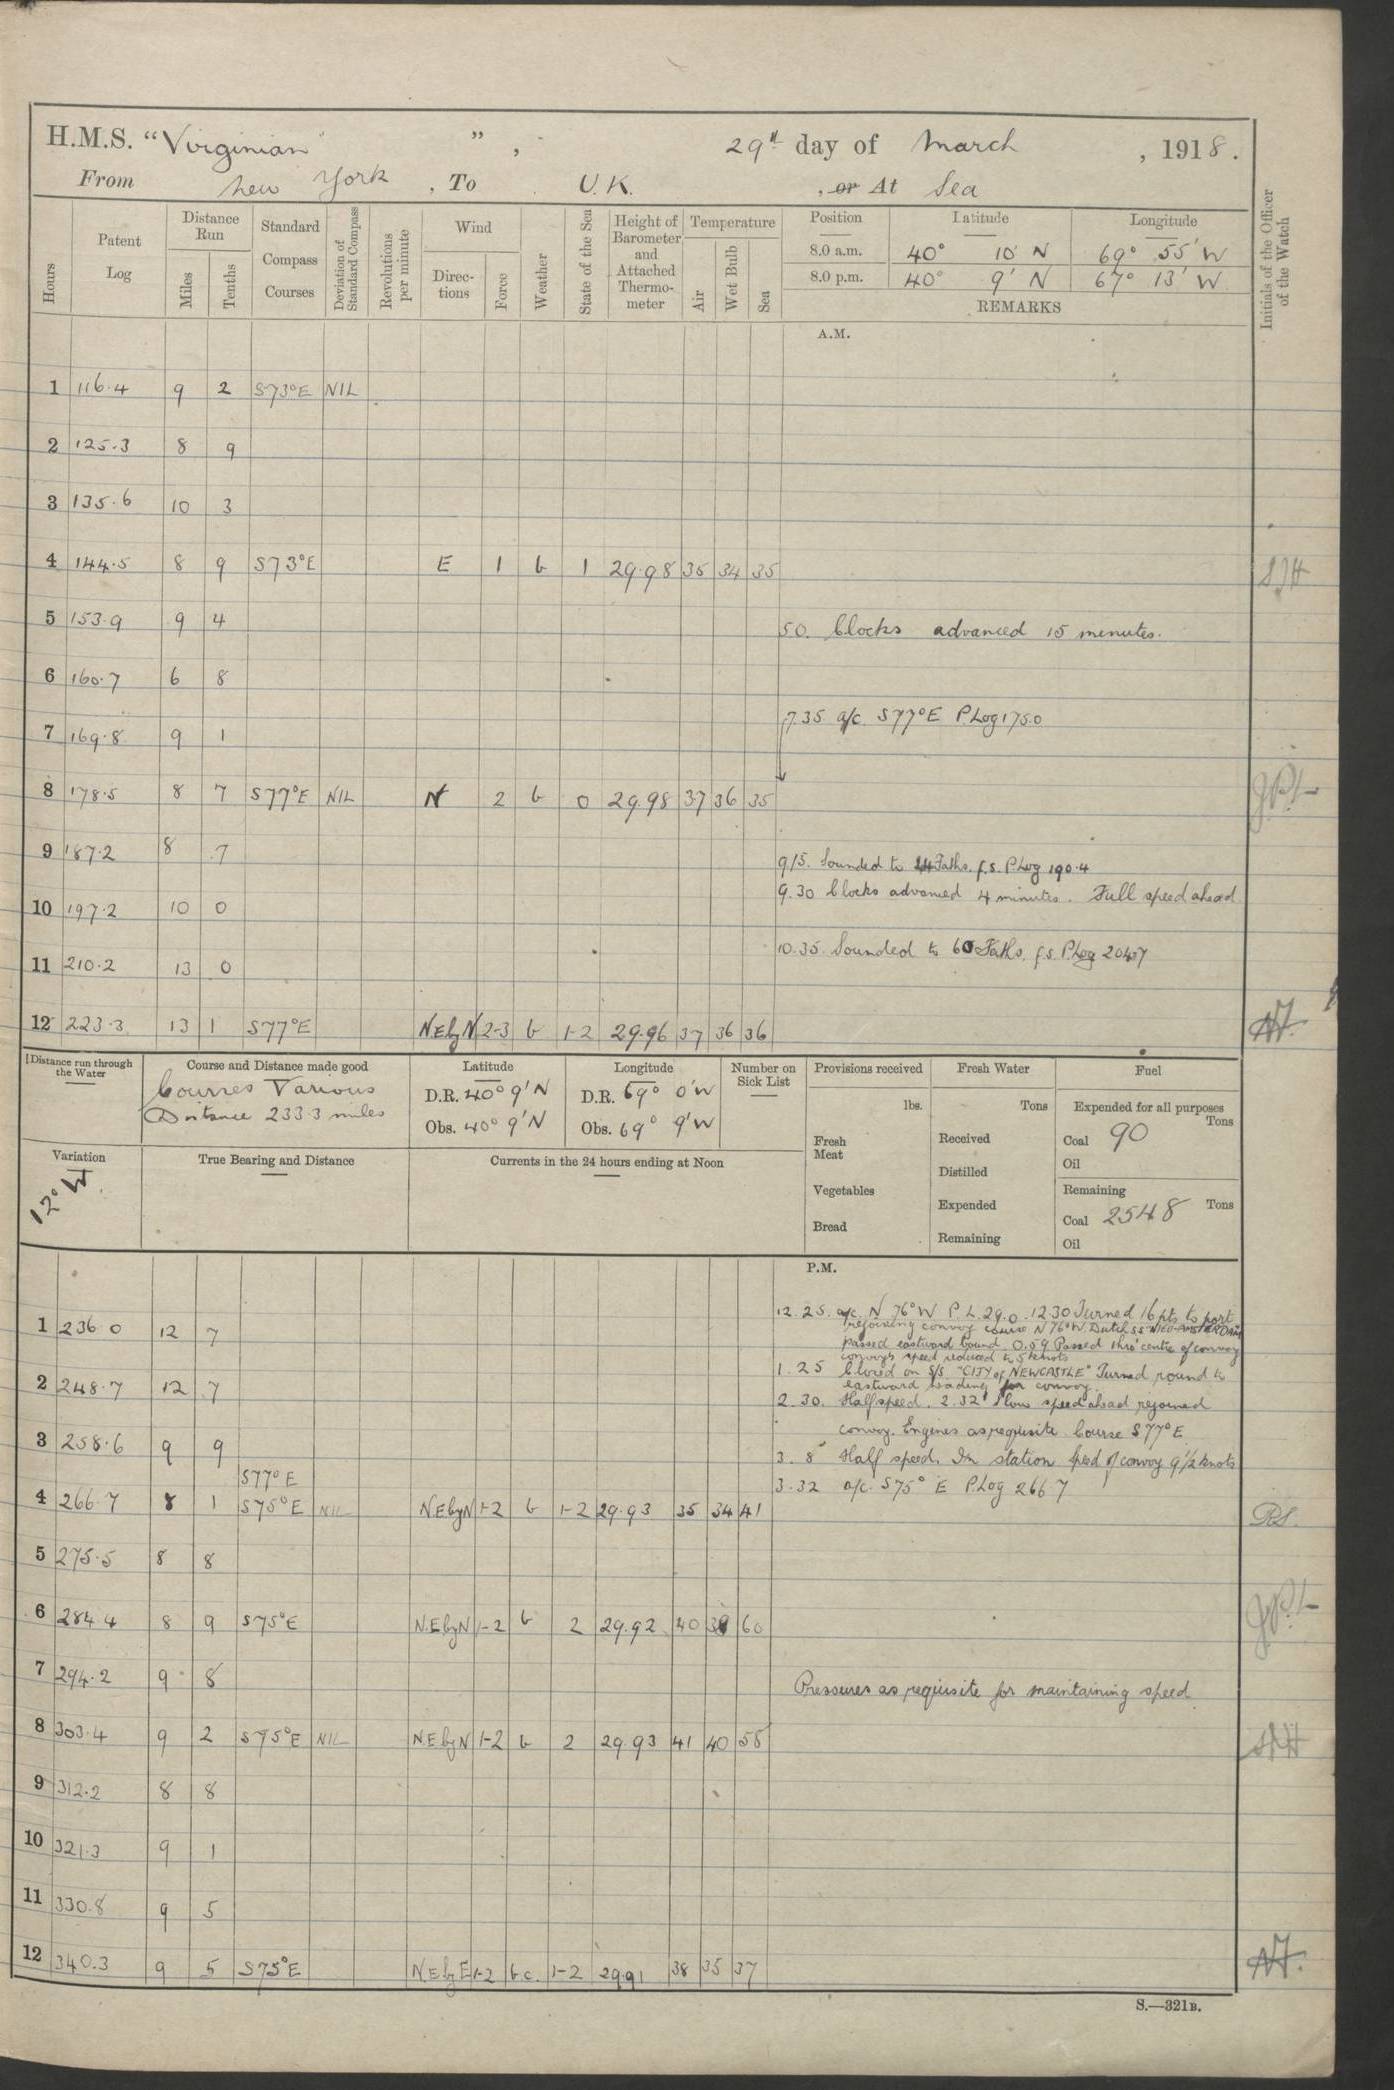 H.M.S. "Virginian" , 29th day of March , 1918.
From New York , To U.K. , or At Sea
Hours
Patent Log
Distance Run
Miles
Tenths
Standard Compass Courses
Deviation of Standard Compass
Revolutions per minute
Wind
Directions
Force
Weather
State of the Sea
Height of Barometer and Attached Thermometer
Temperature
Air
Wet Bulb
Sea
Position Latitude Longitude
8.0 a.m. 40° 10' N 69° 55' W
8.0 p.m. 40° 9' N 67° 13' W
REMARKS
Initials of the Officer of the Watch
A.M.
1 116.4 9 2 S73°E NIL
2 125.3 8 9
3 135.6 10 3
4 144.5 8 9 S73°E E 1 b 1 29.98 35 34 35
5 153.9 9 4 5.0. Clocks advanced 15 minutes.
6 160.7 6 8
7.35 a/c. S77°E P.Log 175.0
7 169.8 9 1
8 178.5 8 7 S77°E NIL N 2 b 0 29.98 37 36 35
9 187.2 8 7
9.15. Sounded to 44 Faths. f.s. P Log 190.4
9.30 Clocks advanced 4 minutes. Full speed ahead
10 197.2 10 0
10.35. Sounded to 60 Faths. f.s. P.Log 204.7
11 210.2 13 0
12 223.3 13 1 S77°E N.E by N 2-3 b 1-2 29.96 37 36 36
Distance run through the Water
Course and Distance made good
Courses Various
Distance 233.3 miles
Latitude
D.R. 40° 9' N
Obs. 40° 9' N
Longitude
D.R. 69° 0' W
Obs. 69° 9' W
Number on Sick List
Provisions received
lbs.
Fresh Meat
Vegetables
Bread
Fresh Water
Tons
Received
Distilled
Expended
Remaining
Fuel
Expended for all purposes
Tons
Coal 90
Oil
Remaining
Tons
Coal 2548
Oil
Variation
12° W.
True Bearing and Distance
Currents in the 24 hours ending at Noon
P.M.
12.25. a/c. N 76°W P.L. 29.0. 12.30 Turned 16 pts to port
rejoining convoy course N76°W. Dutch SS "NIEU-AMSTERDAM
passed eastward bound. 0.59 Passed thro' centre of convoy
convoys speed reduced to 5 knots
1 236.0 12 7
1.25 Closed on S/S. "CITY of NEWCASTLE" Turned round to
eastward leading for convoy.
2 248.7 12 7
2.30. Half speed. 2.32 Slow speed ahead rejoined
convoy. Engines as requisite. Course S77°E
3 258.6 9 9
3.8 Half speed. In station Speed of convoy 9½ knots
3.32 a/c. S75°E P.Log 266.7
S77°E
4 266.7 8 1 S75°E NIL N.E by N 1-2 b 1-2 29.93 35 34 41
5 275.5 8 8
6 284.4 8 9 S75°E N.E by N 1-2 b 2 29.92 40 38 60
7 294.2 9 8
Pressures as requisite for maintaining speed
8 303.4 9 2 S75°E NIL N.E by N 1-2 b 2 29.93 41 40 58
9 312.2 8 8
10 321.3 9 1
11 330.8 9 5
12 340.3 9 5 S75°E N.E by E 1-2 b.c. 1-2 29.91 38 35 37
S.—321B.